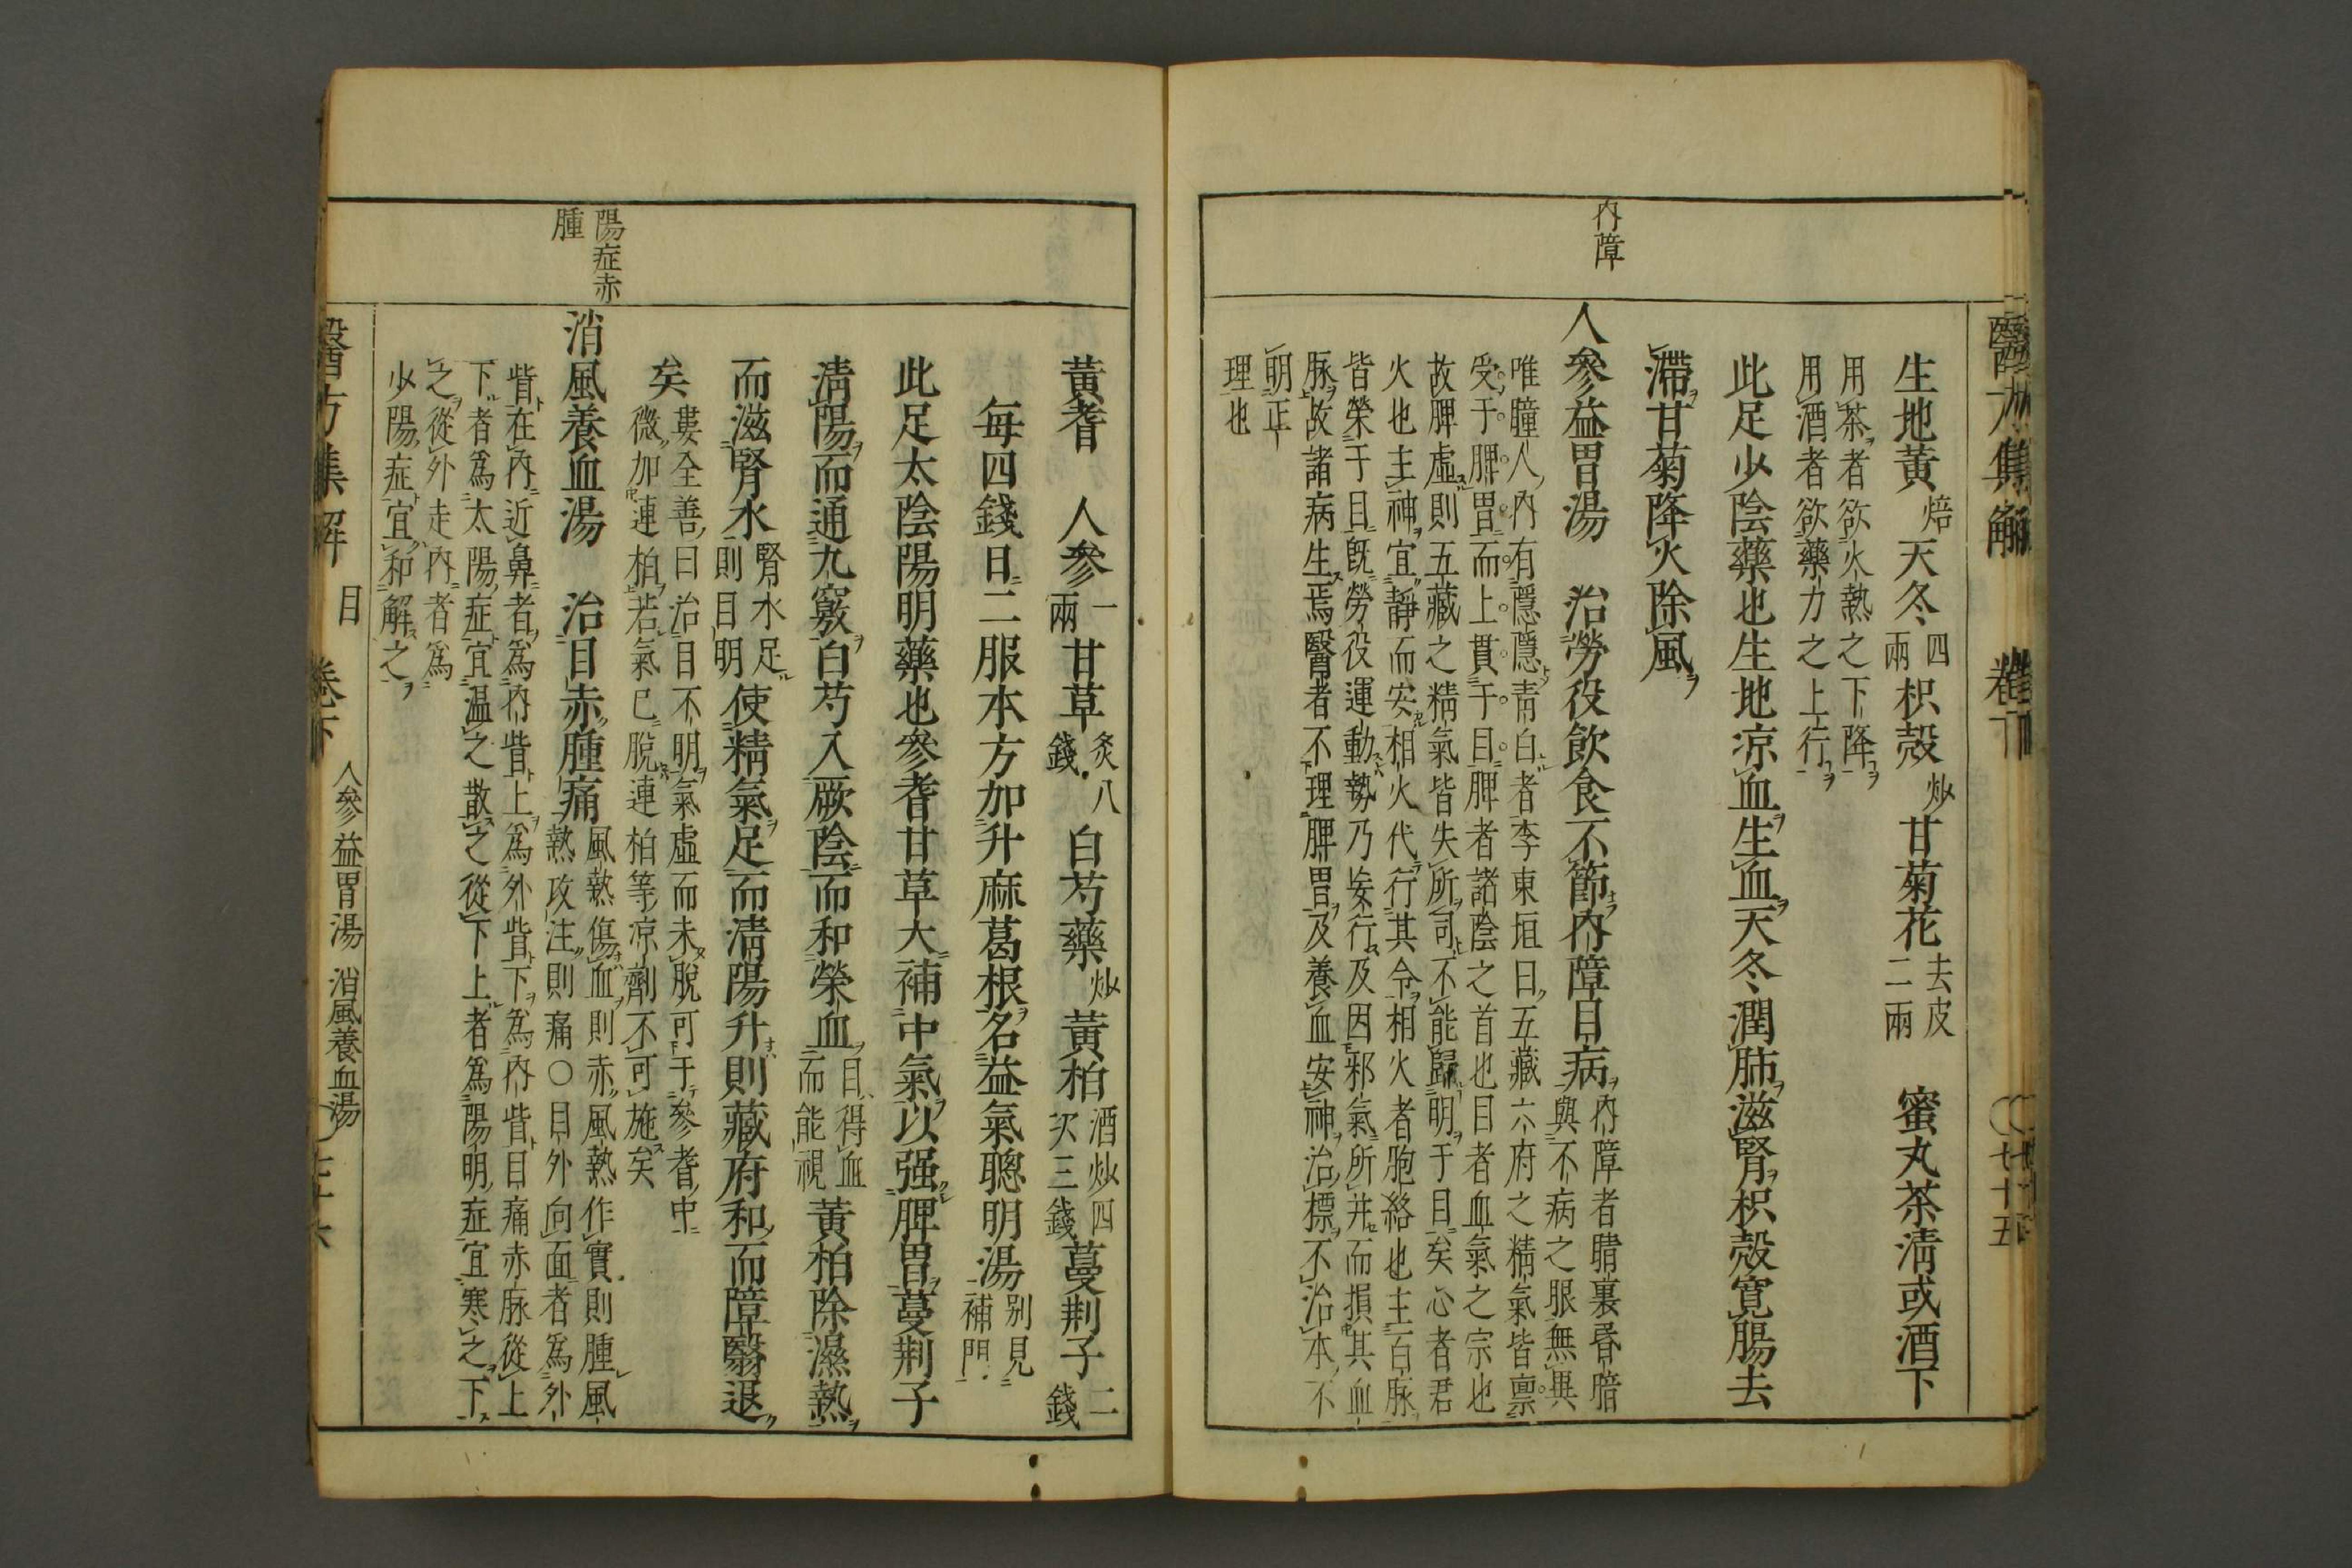 醫方集解
卷下
七十五
內障
生地黄焙天冬四兩枳殻炒甘菊花去皮二兩 蜜丸茶清或酒下
用茶者欲火熱之下降
用酒者欲藥力之上行
此足少陰藥也生地涼血生血天冬潤肺滋腎枳殻寛腸去
滯甘菊降火除風
人參益胃湯 治勞役飲食不節内障目病内障者睛裏昏暗與不病之眼無異
唯瞳人内有隱隱青白者李東垣曰五藏六府之精氣皆禀
受于脾胃而上貫于目脾者諸陰之首也目者血氣之宗也
故脾虛則五藏之精氣皆失所司不能歸明于目矣心者君
火也主神宜靜而安相火代行其令相火者胞絡也主百脉
皆榮于目既勞役運動勢乃妄行及因邪氣所并而損其血
脉故諸病生焉醫者不理脾胃及養血安神治標不治本不
明正
理也
黄耆 人參一兩甘草炙八錢白芍藥炒黄柏酒炒四次三錢蔓荆子二錢
每四錢日二服本方加升麻葛根名益氣聰明湯别見補門
此足太陰陽明藥也參耆甘草大補中氣以强脾胃蔓荆子
清陽而通九竅白芍入厥陰而和榮血目得血而能視黄柏除濕熱
而滋腎水腎水足則目明使精氣足而清陽升則藏府和而障翳退
矣婁全善曰治目不明氣虛而未脫可于參耆中
微加連柏若氣已脫連柏等凉劑不可施矣
陽症赤
腫
消風養血湯 治目赤腫痛風熱傷血則赤風熱作實則腫風
熱攻注則痛○目外向面者爲外
眥在内近鼻者爲内眥上爲外眥下爲内眥目痛赤脉從上
下者爲太陽症宜温之散之從下上者爲陽明症宜寒之下
之從外走内者爲
少陽症宜和解之
醫方集解
目
卷下
人參益胃湯 消風養血湯
七十六